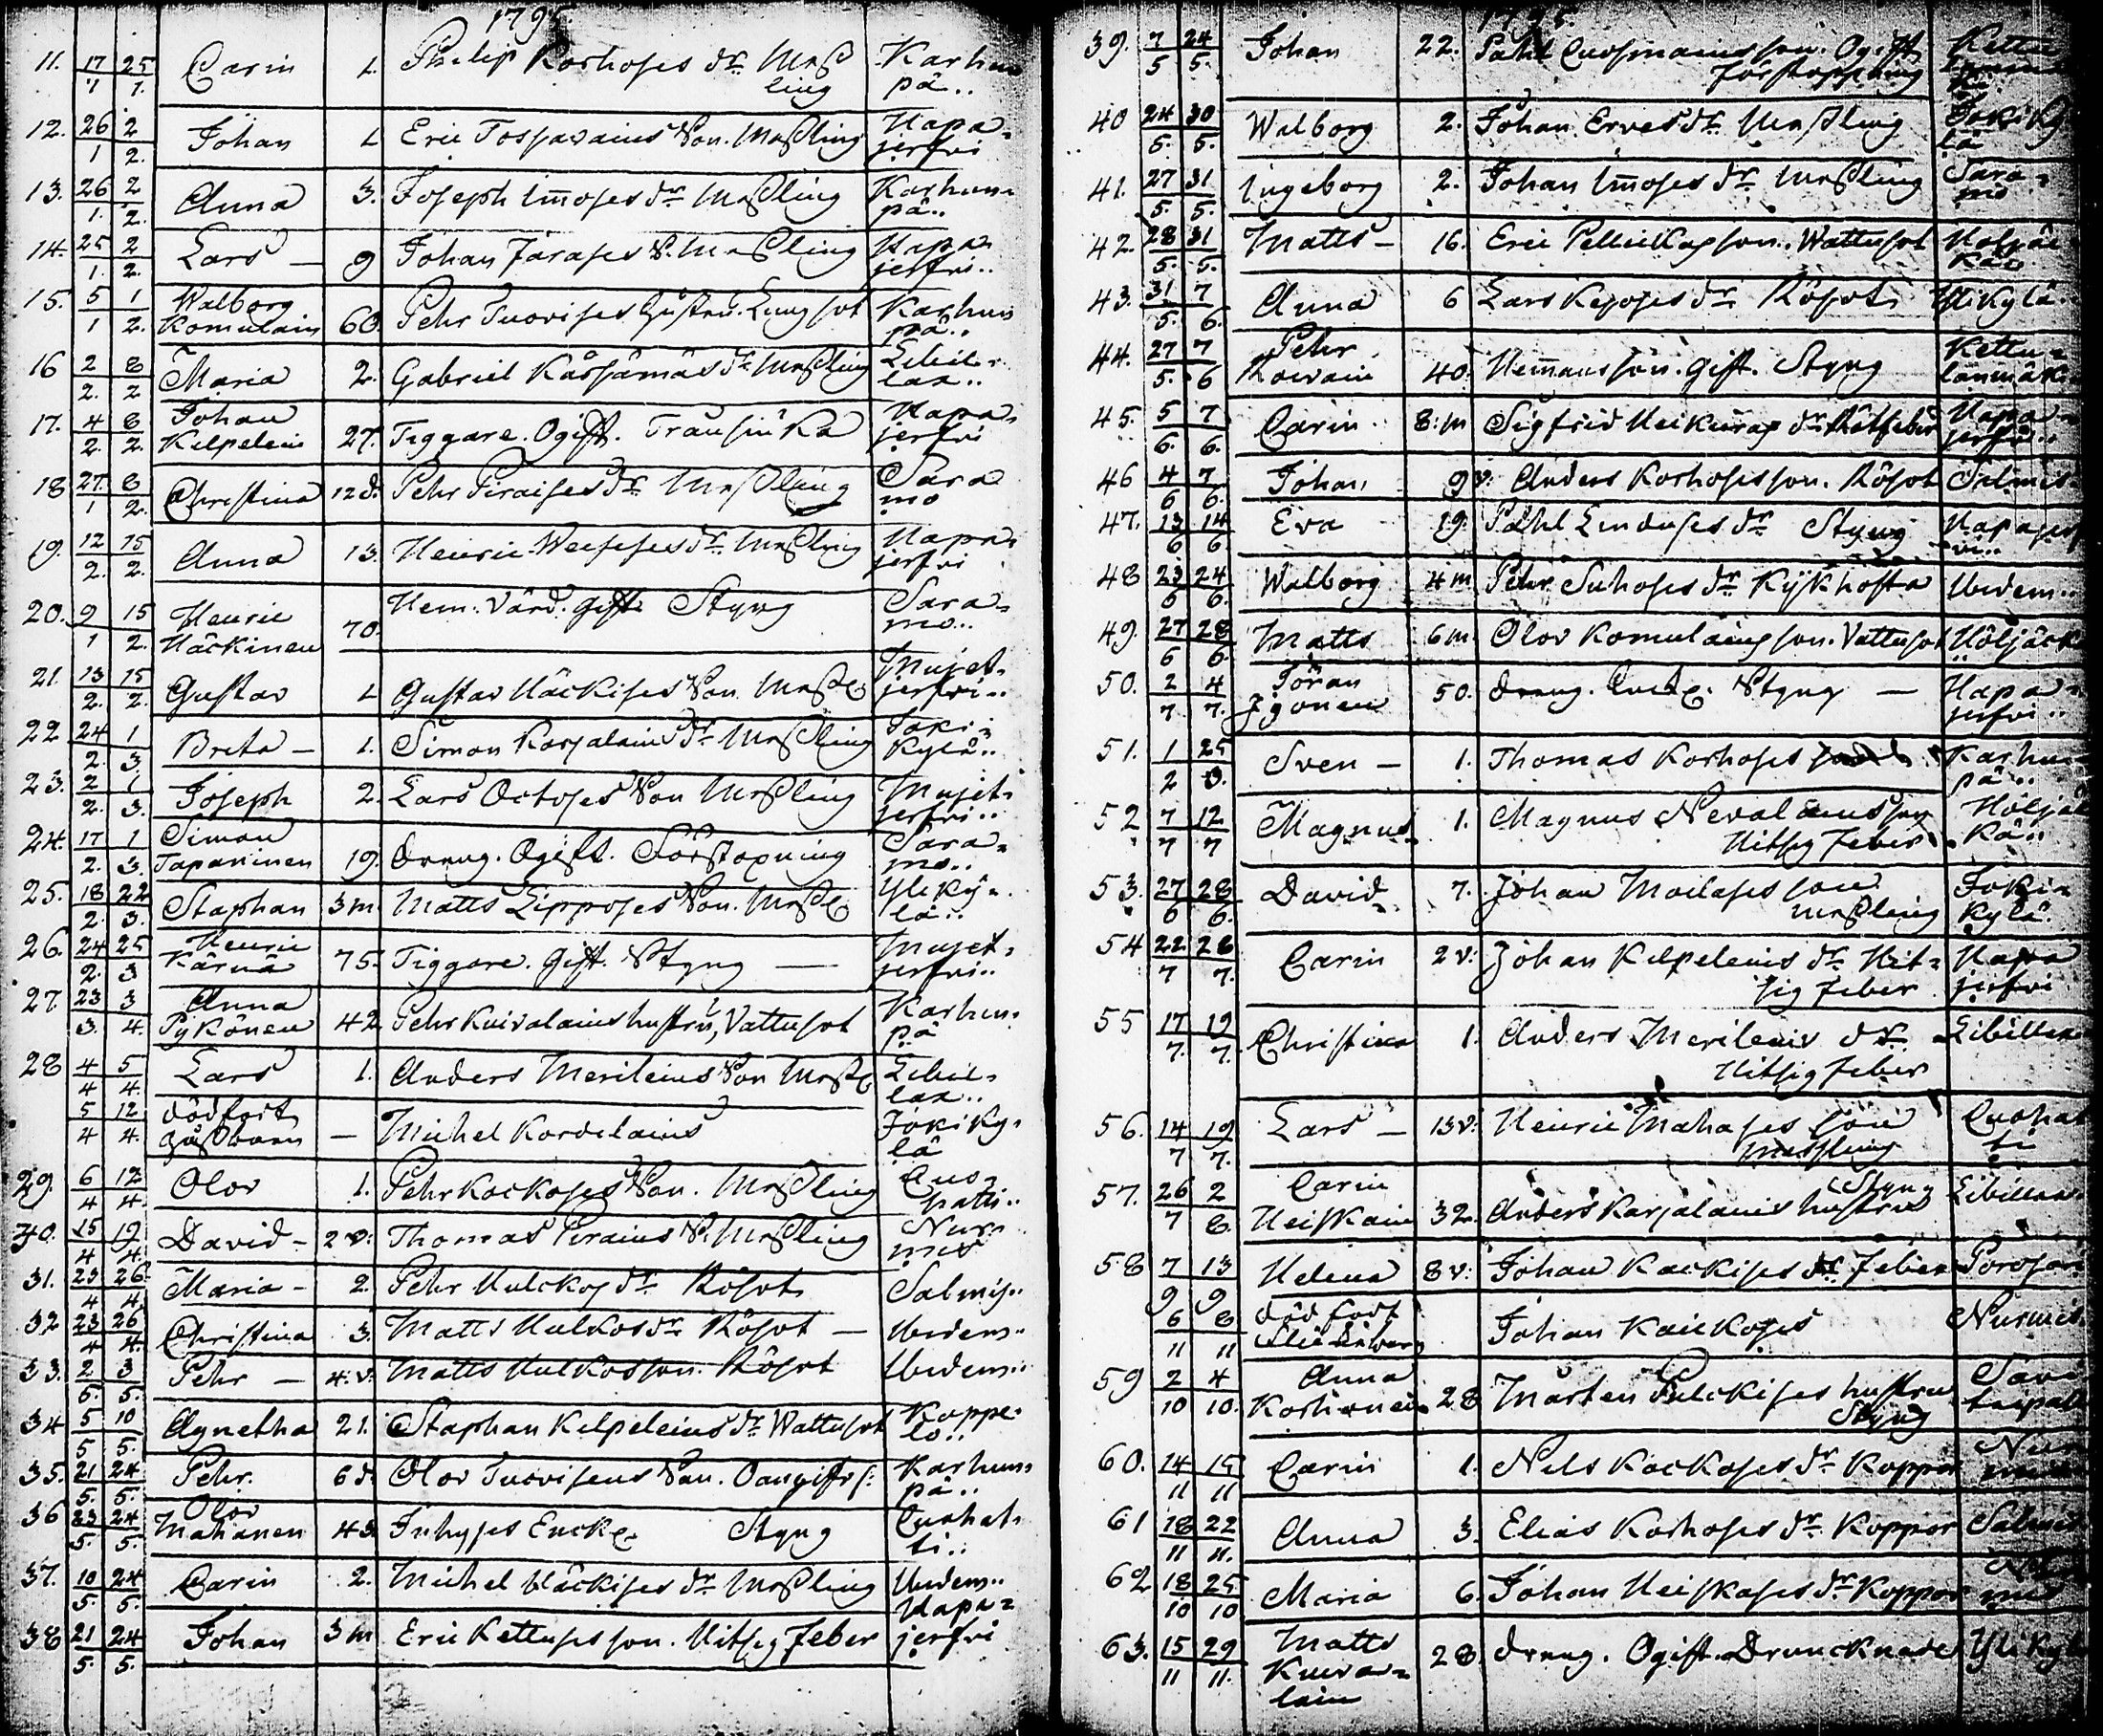 1795
11. 17/1 25/1. Carin 1. Philip Korhoses dr. Mäß Karhun
ling pä..
12. 26/1 2/2. Johan 1 Eric Tossavains Son. Mäßling Hapa-
jerfvi
13. 26/1. 2/2. Anna 3. Joseph Immoses dr Mäßling Karhun-
pä..
14. 25/1. 2/2. Lars — 9 Johan S. Mäßling Hapa-
jerfvi..
15. 5/1 1/2. Walborg Karhun
Komulain 60. Pehr Tuovises Hustru. Lungsot pä..
16 2/2. 8/2 Maria 2. Gabriel dr Mäßling Libil-
lax..
17. 4/2. 8/2. Johan Hapa-
Kelpelein 27. Tiggare. Ogift. Transjuka jerfvi
18 27/1 8/2. Christina 12 d. Pehr Piraises dr Mäßling Sara
mo
19. 12/2. 15/2. Anna 13. Henric dr. Mäßling Hapa-
jerfvi
20. 9/1 15/2. Henric 70. Hem. Värd. gift Styng Sara-
Häckinen mo..
21. 13/2. 15/2. Gustav 1 Gustav Häckises Son Mäßl Mujet-
jerfvi..
22 24/2. 1/3. Brita — 1. Simon Karjalains dr Mäßling Joki-
kylä..
23. 2/2. 1/3. Joseph 2. Lars Octoses Son Mäßling Mujet-
jerfvi..
24. 17/2. 1/3. Simon Sara-
Tapaninen 19. dreng. Ogift. Förstopning mo..
25. 18/2. 22/3. Staphan 3 m. Matts Lipposes Son. Mäßl Ylikÿ-
lä..
26. 24/2. 25/3 Henric Mujet-
Kärnä 75. Tiggare. gift. Styng — jerfvi..
27. 23/3. 3/4. Anna Karhun-
Pykönen 42 Pehr Kuivalains hustru, Vattusot pä
28 4/4 5/4. Lars 1. Anders Merileins Son Mäßl Libil-
lax..
5/4 12/4. dödfört Jokiky-
goßbarn — Michel Kordelains lä
29. 6/4 12/4. Olov 1. Pehr Kockoses Son. Mäßling Quo-
hatti..
30. 15/4 19/4. David — 2 v. Thomas Pirains S. Mäßling Nur-
mis
31. 23/4 26/4. Maria — 2. Pehr Hulckos dr Rösot Salmis..
32 23/4 26/4. Christina 3. Matts Hulkos dr Rösot — Ibidem..
33. 2/5. 3/5. Pehr — 4. v. Matts Hulkos son. Rösot Ibidem..
34 5/5 10/5. Agnetha 21. Staphan Kelpeleins dr Wattusot Koppe-
lo..
35. 21/5. 24/5. Pehr. 6 d. Olov Tuovisens Son. Oangifv s: Karhun-
pä..
36 23/5. 24/5. Olov Quohat-
Mahanen 43 Inhyses Enckl. Styng ti..
37. 10/5. 24/5. Carin 2. Michel Häckises dr Mäßling Ibidem..
38 21/5. 24/5. Johan 3 m Eric Kettuses son. Hitsig Feber Hapa-
jerfvi
1795
39. 7/5 24/5. Johan 22. Pahl son. Ogift Kettu
förstoppning
40 24/5. 30/5. Walborg 2. Johan Erves dr Mäßling Jokiky
lä
41. 27/5. 31/5. Ingeborg 2. Johan Immoses dr Mäßling Sara-
mo
42. 28/5. 31/5. Matts — 16. Eric son. Wattusot
43. 31/5. 7/6. Anna 6 Lars Keposes dr Rösot Ylikylä
44. 27/5. 7/6 Pehr Kettu-
40. Hemmans son. gift. Styng
45. 5/6. 7/6. Carin 8: m Sigfrid dr Rötfeber Hapa-
jerfvi..
46 4/6 7/6. Johan 9 v. Anders Korhoses son. Rösot Salmis
47. 13/6 14/6 Eva 19. Pahl dr Styng Hapajerf
vi..
48 23/6 24/6. Walborg 4 m Pehr Suhoses dr Kÿkhosta Ibidem..
49. 27/6 28/6. Matts 6 m. Olov Komulains son. Vattusot Höljäck
50. 2/7. 4/7. Jöran 50. dreng. Enckl. Styng — Hapa-
jerfvi..
51. 1/2 25/ Sven — 1. Thomas Korhoses Karhun
pä..
52 7/7 12/7 Magnus 1. Magnus Nevalains son Höljäk
Hitsig Feber kä..
53. 27/6 28/6. David 7. Johan Moilases son Joki-
Mäßling kylä.
54 22/7 26/7. Carin 2 v. Johan Kelpeleins dr Hit- Hapa
sig Feber jerfvi
55 17/7. 19/7. Christina 1. Anders Merileins dr. Libillax
Hitsig Feber
56. 14/7 19/7. Lars — 13 v. Henric Mahases son Quohat
messling ti
57. 26/7 2/8. Carin Styng Libillax
Heiskain 32. Anders Karjalains hustru
58 7/9 13/9 Helena 8 v. Johan Kackises dr Feber Porosari
6/11 8/11 död fört Johan Kaickoses Nurmis
59 2/10 4/10. Anna Savi
Korhonen 28 Mårten Pulckises hustru
Styng
60. 14/11 15/11 Carin 1. Nils Kockoses dr Koppor
61 18/11 22/11. Anna 3. Elias Korhoses dr. Koppor Salmis
62 18/10 25/10 Maria 6. Johan Heiskases dr Koppor
mis
63. 15/11 29/11. Matts 28. dreng. Ogift. Druncknade Ylikyl
Kuiva-
lain